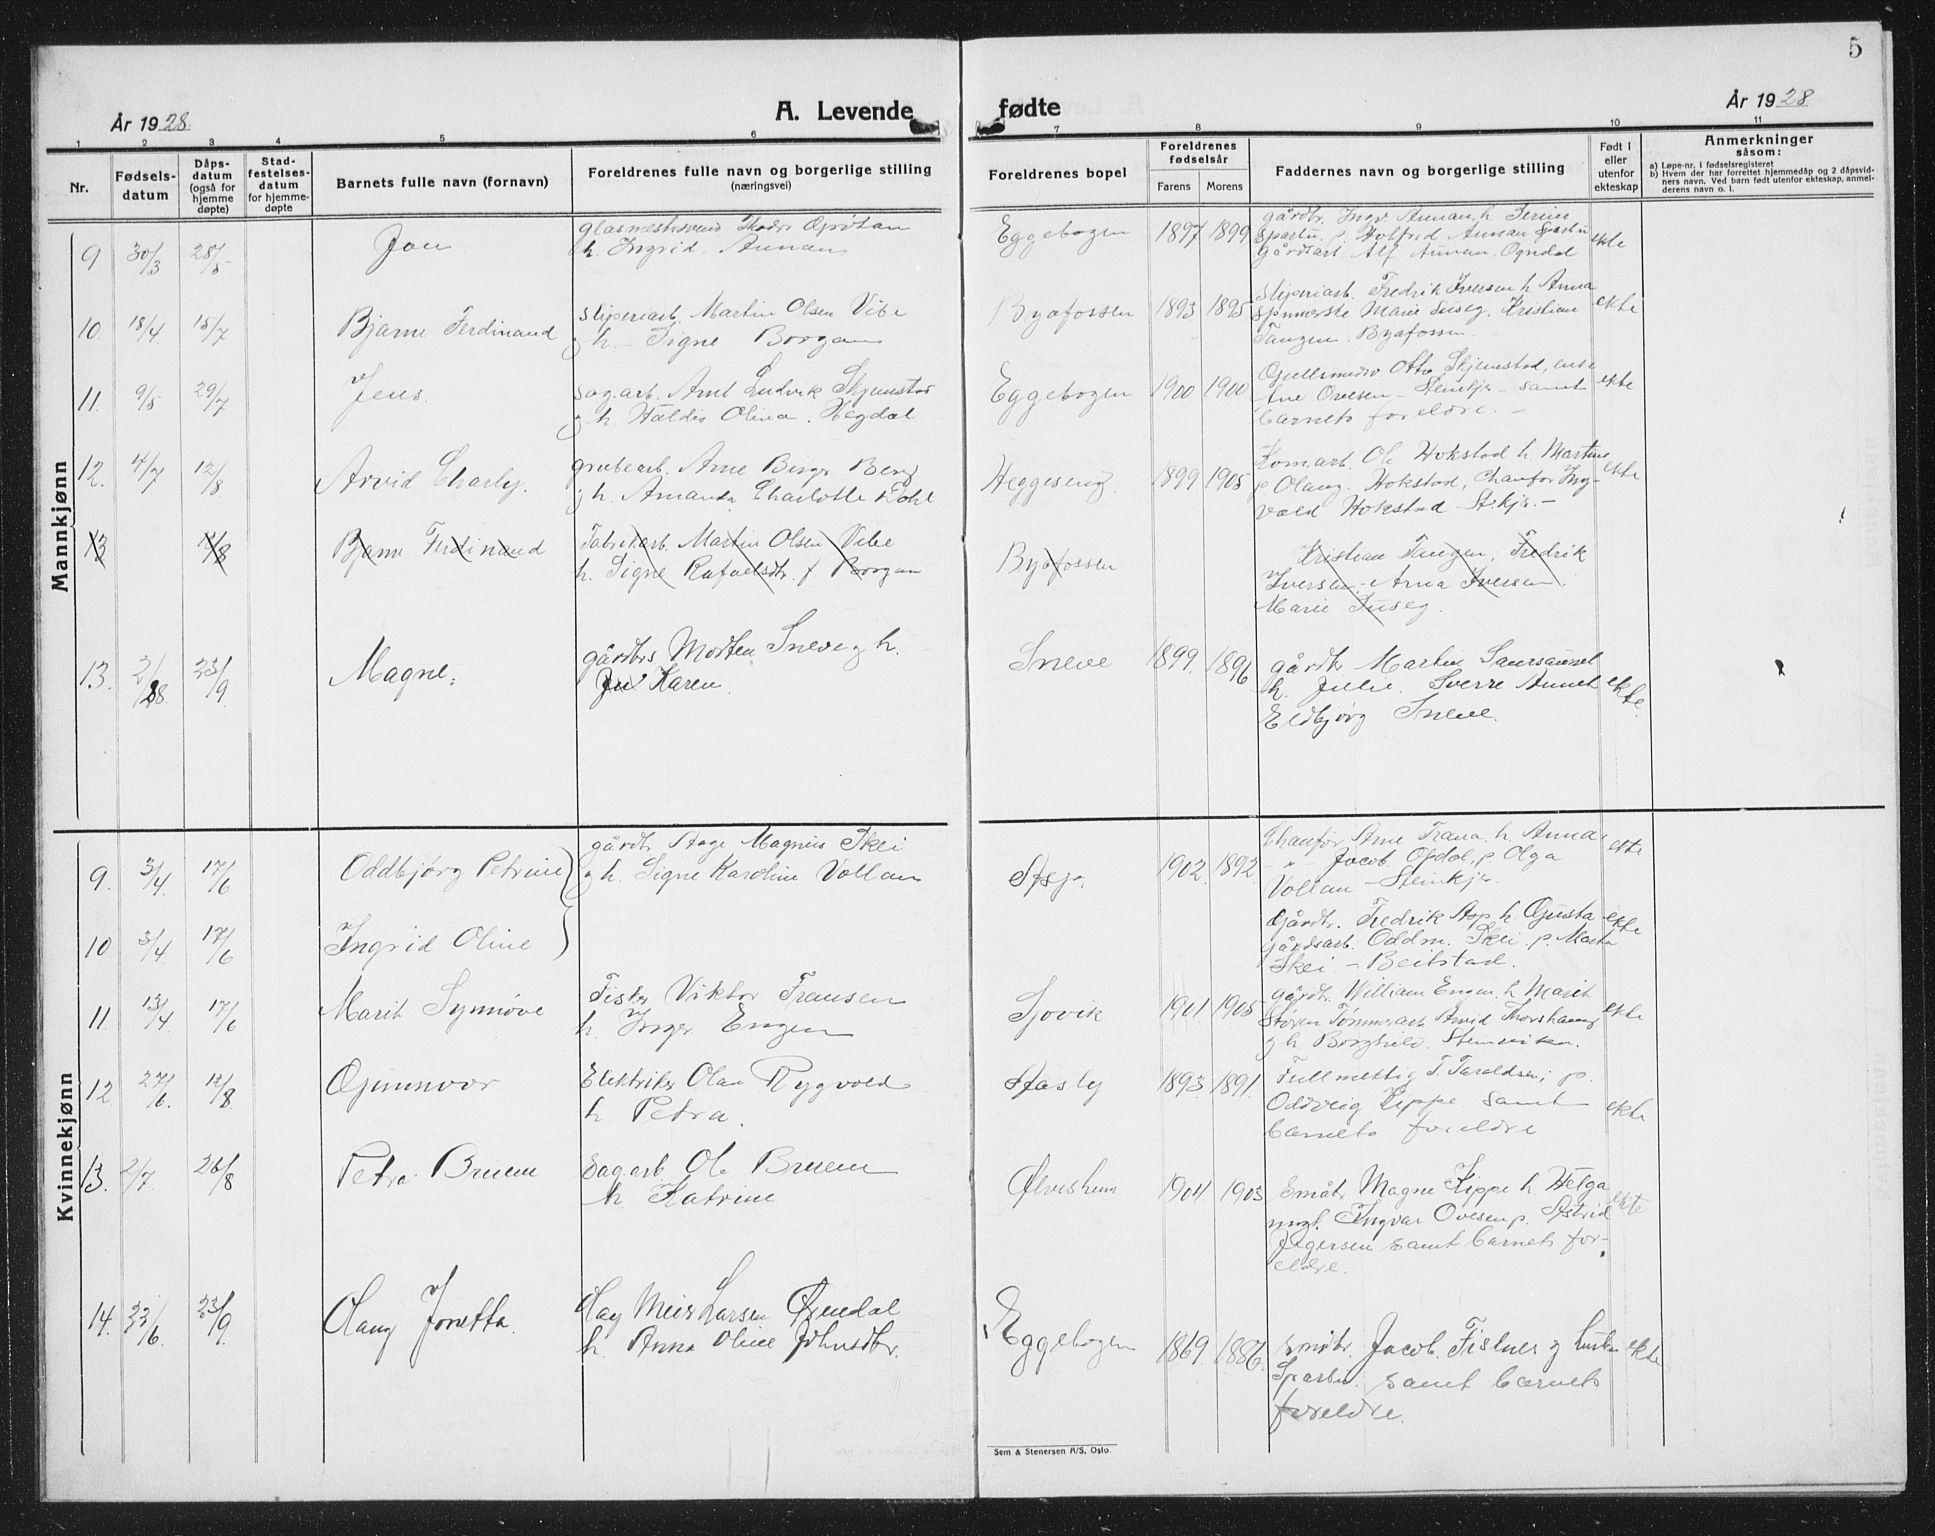 5
År 1928.
A. Levende
fødte
År 1928
1 2 3 4 5 6 7 8 9 10 11
Nr.
Fødsels-
datum
Dåps-
datum
(også for
hjemme
døpte)
Stad-
festelses-
datum
for hjemme-
døpte
Barnets fulle navn (fornavn)
Foreldrenes fulle navn og borgerlige stilling
(næringsvei)
Foreldrenes bopel
Foreldrenes
fødselsår
Farens Morens
Faddernes navn og borgerlige stilling
Født i
eller
utenfor
ekteskap
Anmerkninger
såsom:
a) Løpe-nr. i fødselsregisteret
b) Hvem der har forrettet hjemmedåp og 2 dåpsvid-
ners navn. Ved barn født utenfor ekteskap, anmel-
derens navn o. l.
Mannkjønn
9 30/3 28/5 Jon
h. Ingrid Aunan
Eggebogen 1897 1899
gårdbr. Ingv Aunan, h.
Sparbu. p. Aunan
gårdsarb. Alf Aunan Ogndal
ekte
10 18/4 15/7 Bjarne Ferdinand
Sliperiarb. Martin Olsen Vibe
h. Signe Borgan
Byafossen 1893 1895
Sliperiarb. Fredrik Iversen h. Anna
Marie Kristian
Tangen. Byafossen
ekte
11. 9/5 29/7 Jens.
Sagarb. Arnt Ludvik Skjemstad
g h. Haldis Olina Hegdal
Eggebogen 1900 1900
Otto Skjemstad, enke
Ane Ovesen - Steinkjer - samt
barnets foreldre. -
ekte
12. 4/7 12/8 Arvid Charly.
grubearb. Arne Birger Berg
g h. Amanda Charlotte Dahl
Heggeseng 1899 1905
Ole Hokstad h. Martine
p Olaug Hokstad, Chaufør Ing-
vald Hokstad Stkjr. -
ekte
13 12/8 Bjarne Ferdinand
Fabrikarb. Martin Olsen Vibe
h. Signe Rafaelsdtr. f Borgan
Byafossen
Kristian Tangen, Fredrik
Iversen, Anna Iversen
Marie
13. 2/8 28 23/9 Magne.
gårdbrs Morten Sneve g h.
Karen
Sneve 1899. 1896
gårdb. Martin
h. Julie. Sverre
Eldbjørg Sneve.
ekte.
Kvinnekjønn
9. 3/4 17/6 Oddbjørg Petrine
gårdbr Aage Magnus Skei
g h. Signe Karoline Vollan
Asp. 1902. 1892.
Chaufør Arne Trana h. Anna
- " - Jacob Opdal, p. Olga
Vollan - Steinkjer.
ekte
10 3/4 17/6 Ingrid Oline
Gårdbr. Fredrik Asp h. Gusta
gårdsarb. Oddm. Skei p. Marta
Skei - Beitstad.
ekte
11 13/4 17/6 Marit Synnøve
Fisker Viktor Fransen
h. Inger Engen
Sjovik 1901 1905
gårdbr. William Engen h. Marit
Støren Tømmerarb Arvid
g h. Borghild. Steinviken.
ekte
12 27/6. 12/8 Gunnvor
Elektriker Olav Rygvold
h Petra.
Aasly 1893 1891.
Fullmektig T. Taraldsen; p.
Oddveig Kippe samt
barnets foreldre
ekte
13. 2/7 26/8 Petra Bruem
Sagarb Ole Bruem
h Katrine
Ølvesheim 1904 1903
Småbr Magne Kippe h Helga
Ingvar Ovesen p. Astrid
samt barnets for-
eldre.
ekte
14. 23/6 23/9 Olaug Jonetta.
Hag Meier Larsen
h. Anna Oline Johnsdtr.
Eggebogen 1869. 1886.
småbr. Jacob g hustru
Sparbu. samt barnets
foreldre.
ekte
Sem & Stenersen A/S, Oslo.